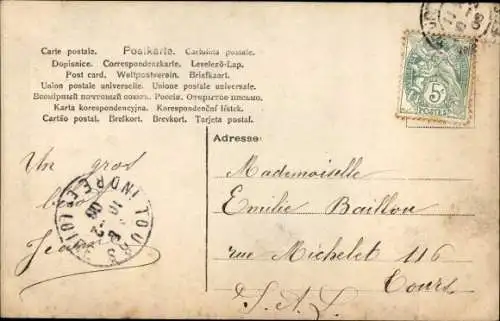 Carte postale. Postkarte. Cartolina postale.
Dopisnice. Correspondenzkarte. Levelező-Lap.
Post card. Weltpostverein. Briefkaart.
Union postale universelle. Unione postale universale.
Всемірный почтовый союзъ. Россія. Открытое письмо.
Karta korespondencyjna. Korespondenční lístek.
Cartão postal. Brefkort. Brevkort. Tarjeta postal.
Adresse:
5c
POSTES
Mademoiselle
Emilie Baillou
rue Michelet 116
Tours
I. & L.
Un gros
Jeanne
TOURS
INDRE ET LOIRE